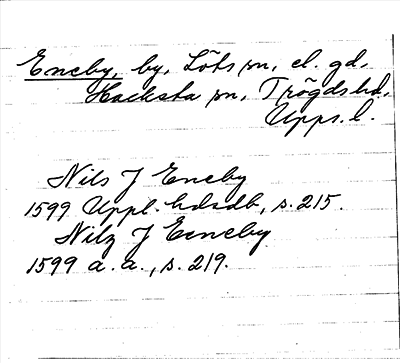 Eneby, by, Löts sn, el. gd.
Hacksta sn, Trögds hd.
Upps. l.
Nils J Eneby
1599 Uppl. hdsdb, s. 215.
Nilz J Eeneby
1599 a. a., s. 219.